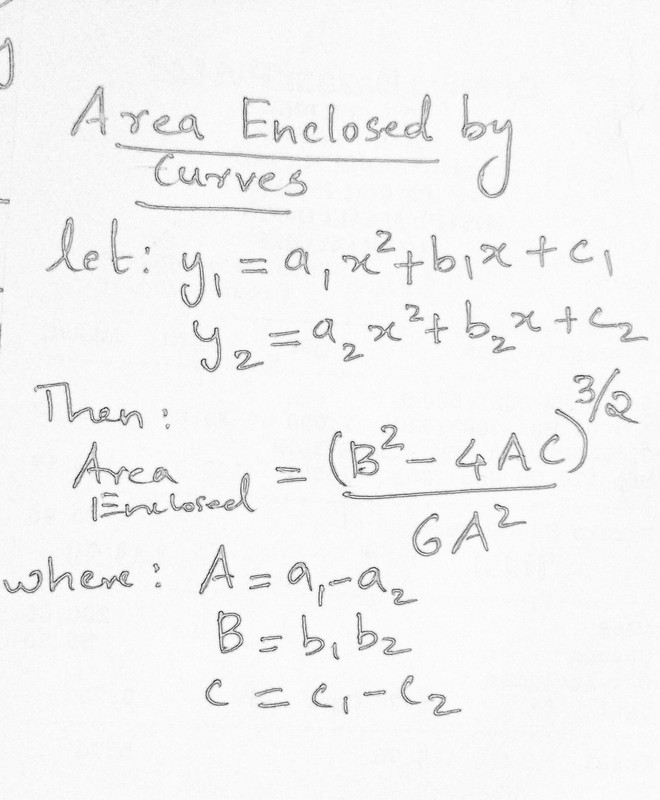 Area Enclosed by
Curves
let: y₁ = a₁x² + b₁x + c₁
y₂ = a₂x² + b₂x + c₂
Then:
Area Enclosed = (B² - 4AC)^3/2 / 6A²
where: A = a₁ - a₂
B = b₁ b₂
C = c₁ - c₂